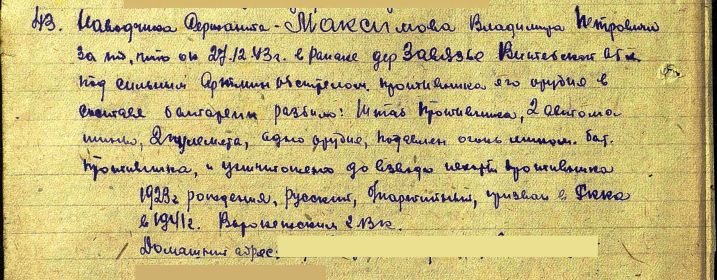 43. Наводчика Сержанта - Максимова Владимира Петровича
За то, что он 27.12.43г. в районе дер Завязье Витебской обл.
под сильным Артмин обстрелом противника его орудие в
составе батареи разбило: Штаб противника, 2 автома
шины, 2 пулемета, одно орудие, подавлен огонь мином. бат.
противника, и уничтожено до взвода пехоты противника
1923г рождения, русский, б/партийный, призван в РККА
в 1941г. РВК.
Домашний адрес: